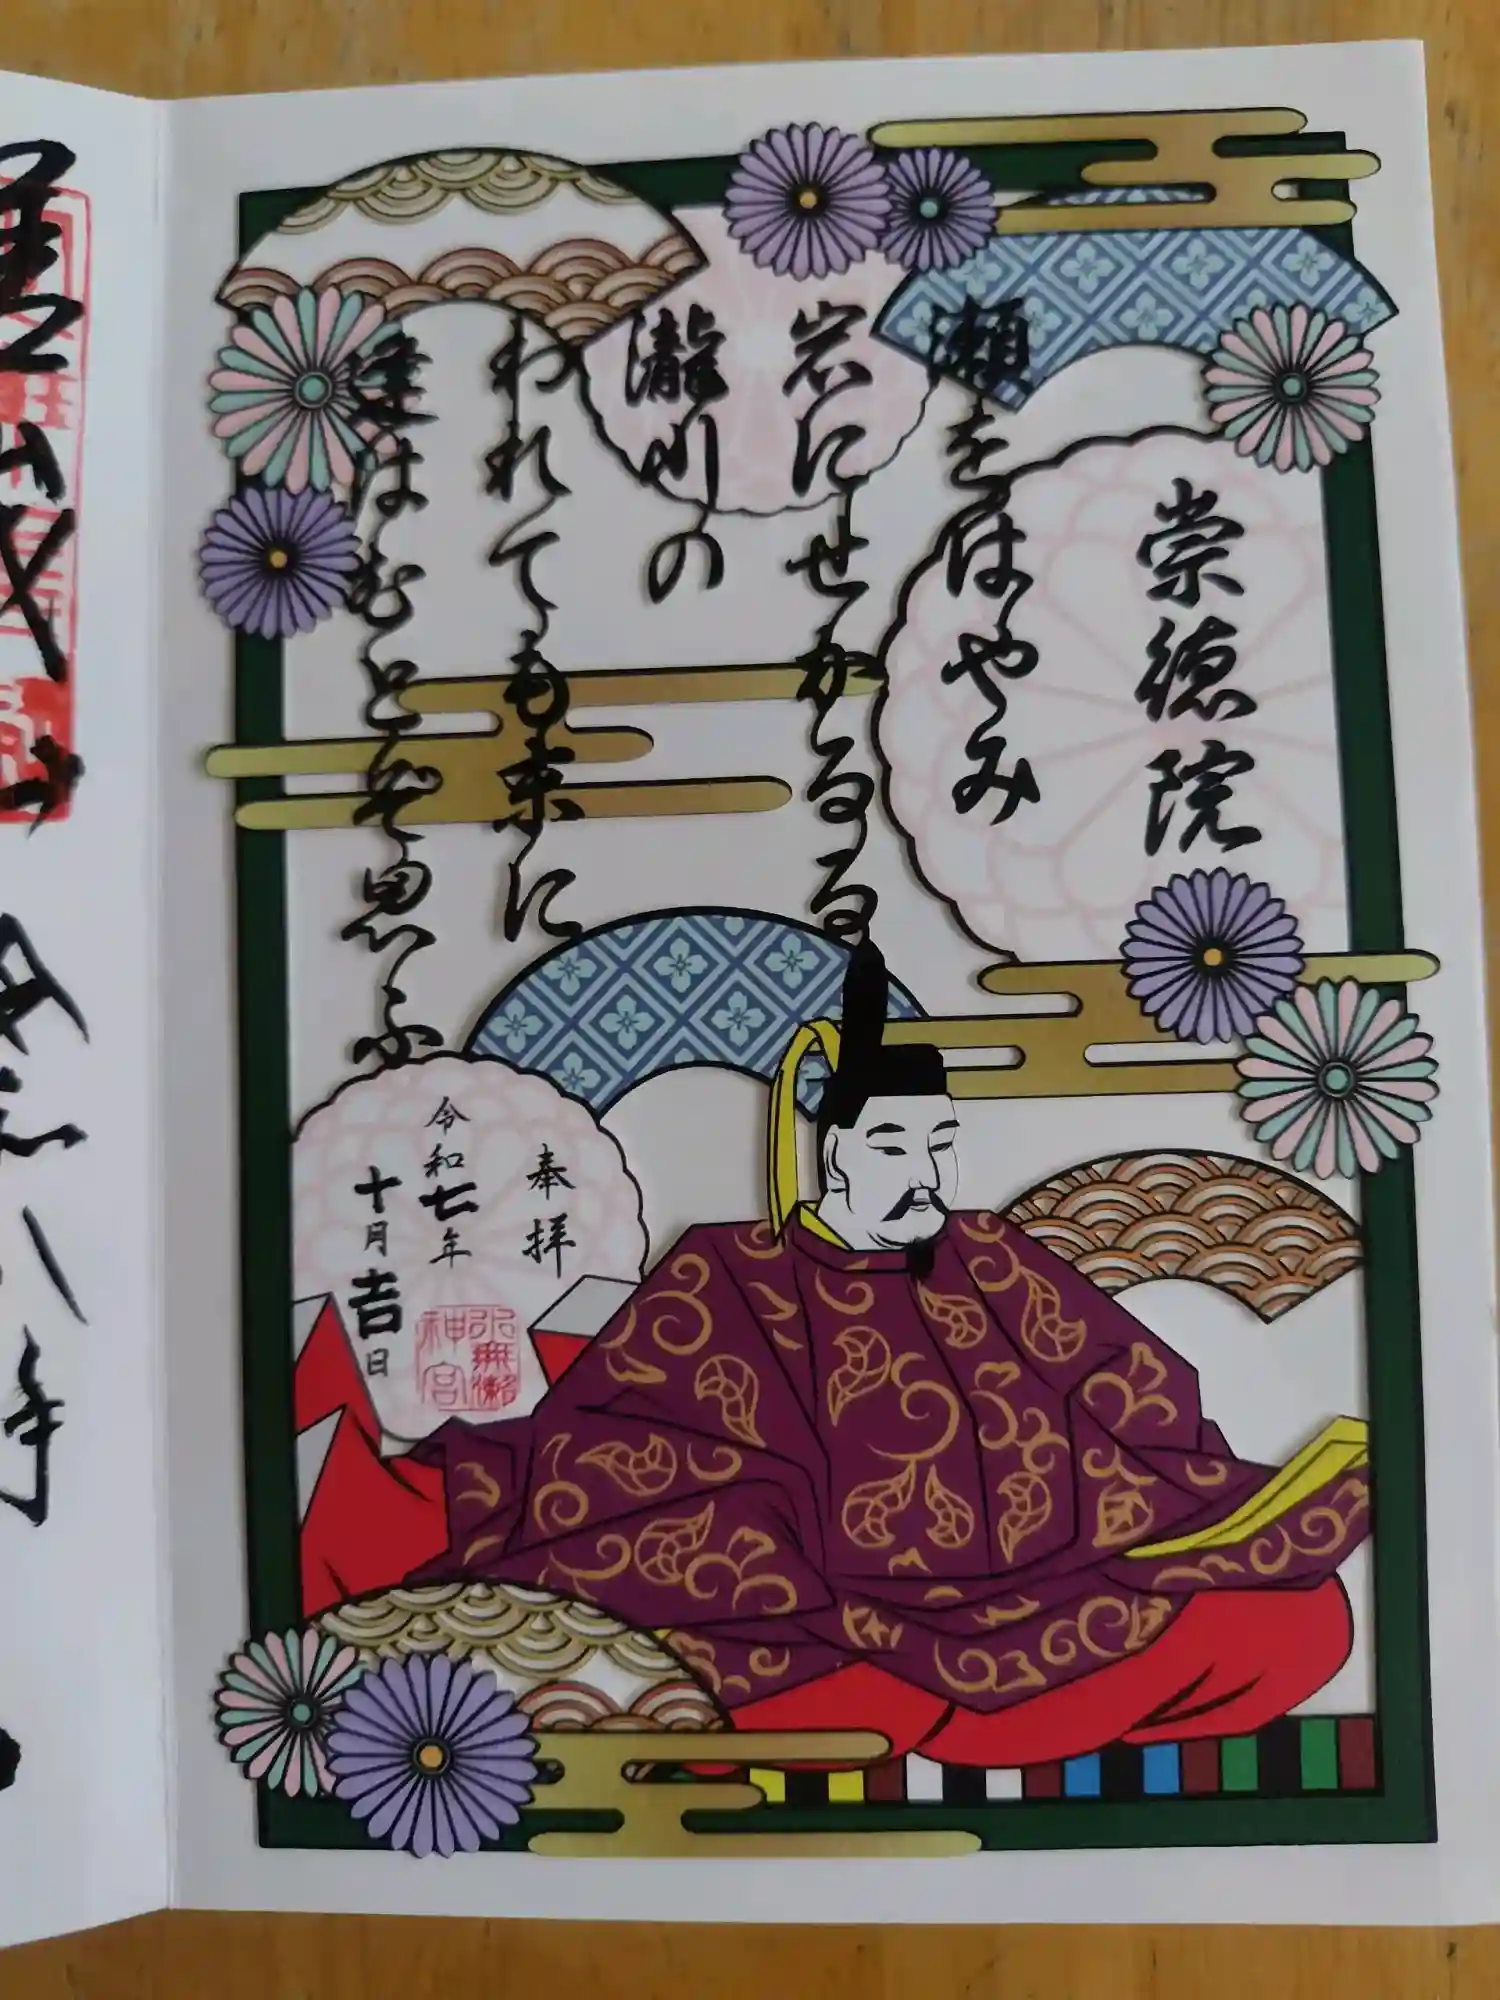 崇徳院
瀬をはやみ
岩にせかるる
瀧川の
われても末に
逢はむとぞ思ふ
奉拝
令和七年
十月吉日
水無瀬
神宮